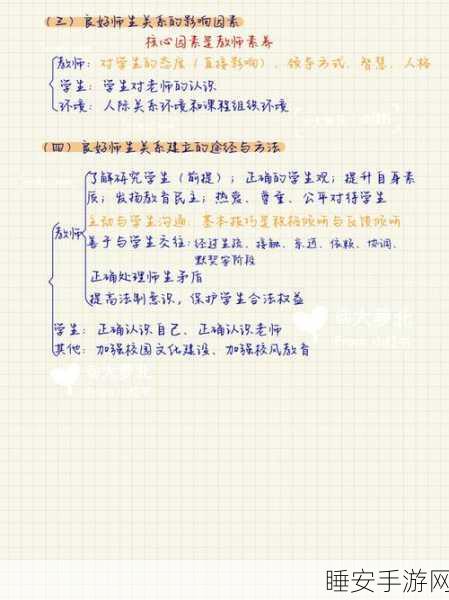 (三)良好师生关系的影响因素
核心因素是教师素养
教师:对学生的态度(直接影响)、领导方式、智慧、人格
学生:学生对老师的认识
环境:人际关系环境和课程组织环境
(四)良好师生关系建立的途径与方法
了解研究学生(前提);正确的学生观;提升自身素
质;发扬教育民主;热爱、尊重、公平对待学生
主动与学生沟通,基本技巧是积极倾听与反馈倾听
教师
善于与学生交往:经过生疏、接触、亲近、依赖、协调、
默契等阶段
正确处理师生矛盾
提高法制意识,保护学生合法权益
学生:正确认识自己、正确认识老师
其他:加强校园文化建设、加强校风教育
睡安手游网